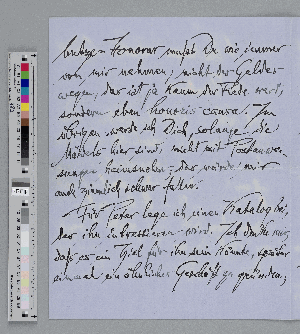 Honorar mußt Du wie immer
von mir nehmen, nicht des Geldes
wegen, das ist ja kaum der Rede wert,
sondern eben honoris causa. Im
übrigen werde ich Dich, solange die
hier sind, nicht mit
heimsuchen; das würde mir
auch ziemlich schwer fallen.
Für Peter lege ich einen Katalog bei,
der ihn interessieren wird. Ich denke mir,
daß es ein Ziel für ihn sein könnte, später
einmal ein ähnliches Geschäft zu gründen,